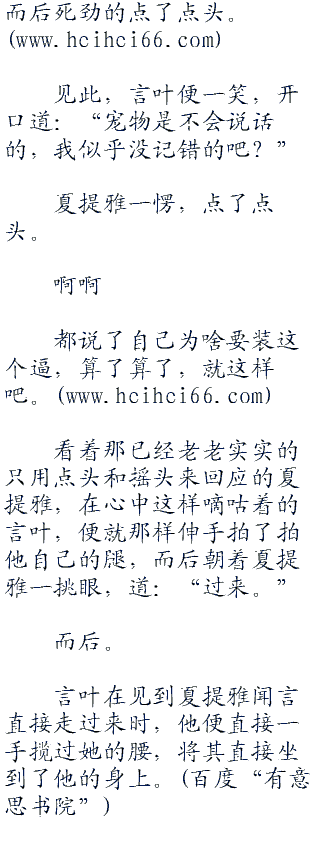 而后死劲的点了点头。
(www.hcihci66.com)
见此，言叶便一笑，开
口道：“宠物是不会说话
的，我似乎没记错的吧？”
夏提雅一愣，点了点
头。
啊啊
都说了自己为啥要装这
个逼，算了算了，就这样
吧。(www.hcihci66.com)
看着那已经老老实实的
只用点头和摇头来回应的夏
提雅，在心中这样嘀咕着的
言叶，便就那样伸手拍了拍
他自己的腿，而后朝着夏提
雅一挑眼，道：“过来。”
而后。
言叶在见到夏提雅闻言
直接走过来时，他便直接一
手揽过她的腰，将其直接坐
到了他的身上。(百度“有意
思书院”)